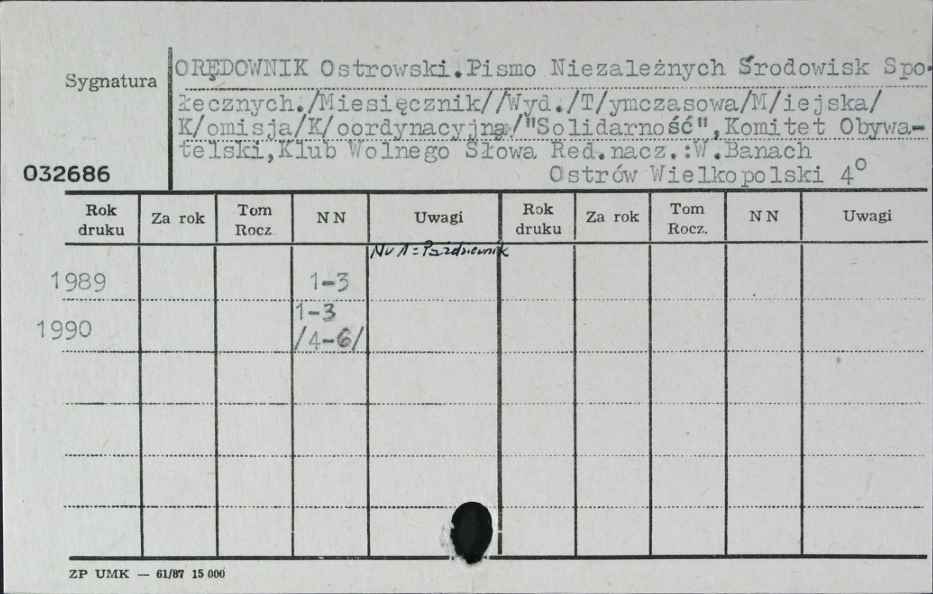 Sygnatura
ORĘDOWNIK Ostrowski.Pismo Niezależnych Środowisk Spo-
łecznych./Miesięcznik//Wyd./T/ymczasowa/M/iejska/
K/omisja/K/oordynacyjna/"Solidarność",Komitet Obywa-
telski,Klub Wolnego Słowa Red.nacz.:W.Banach
032686
Ostrów Wielkopolski 4°
Rok druku Za rok Tom Rocz. NN Uwagi Rok druku Za rok Tom Rocz. NN Uwagi
Nr 1 = Październik
1989 1-3
1990 1-3
/4-6/
ZP UMK — 61/87 15 000